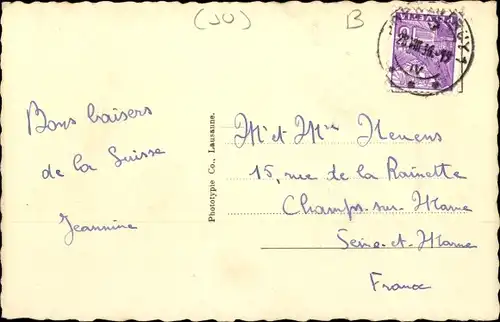 (JU)
B
HELVETIA
Bons baisers
de la Suisse
Jeannine
Phototypie Co., Lausanne.
Mr et Mme Nevens
15, rue de la Rainette
Champs-sur-Marne
Seine-et-Marne
France